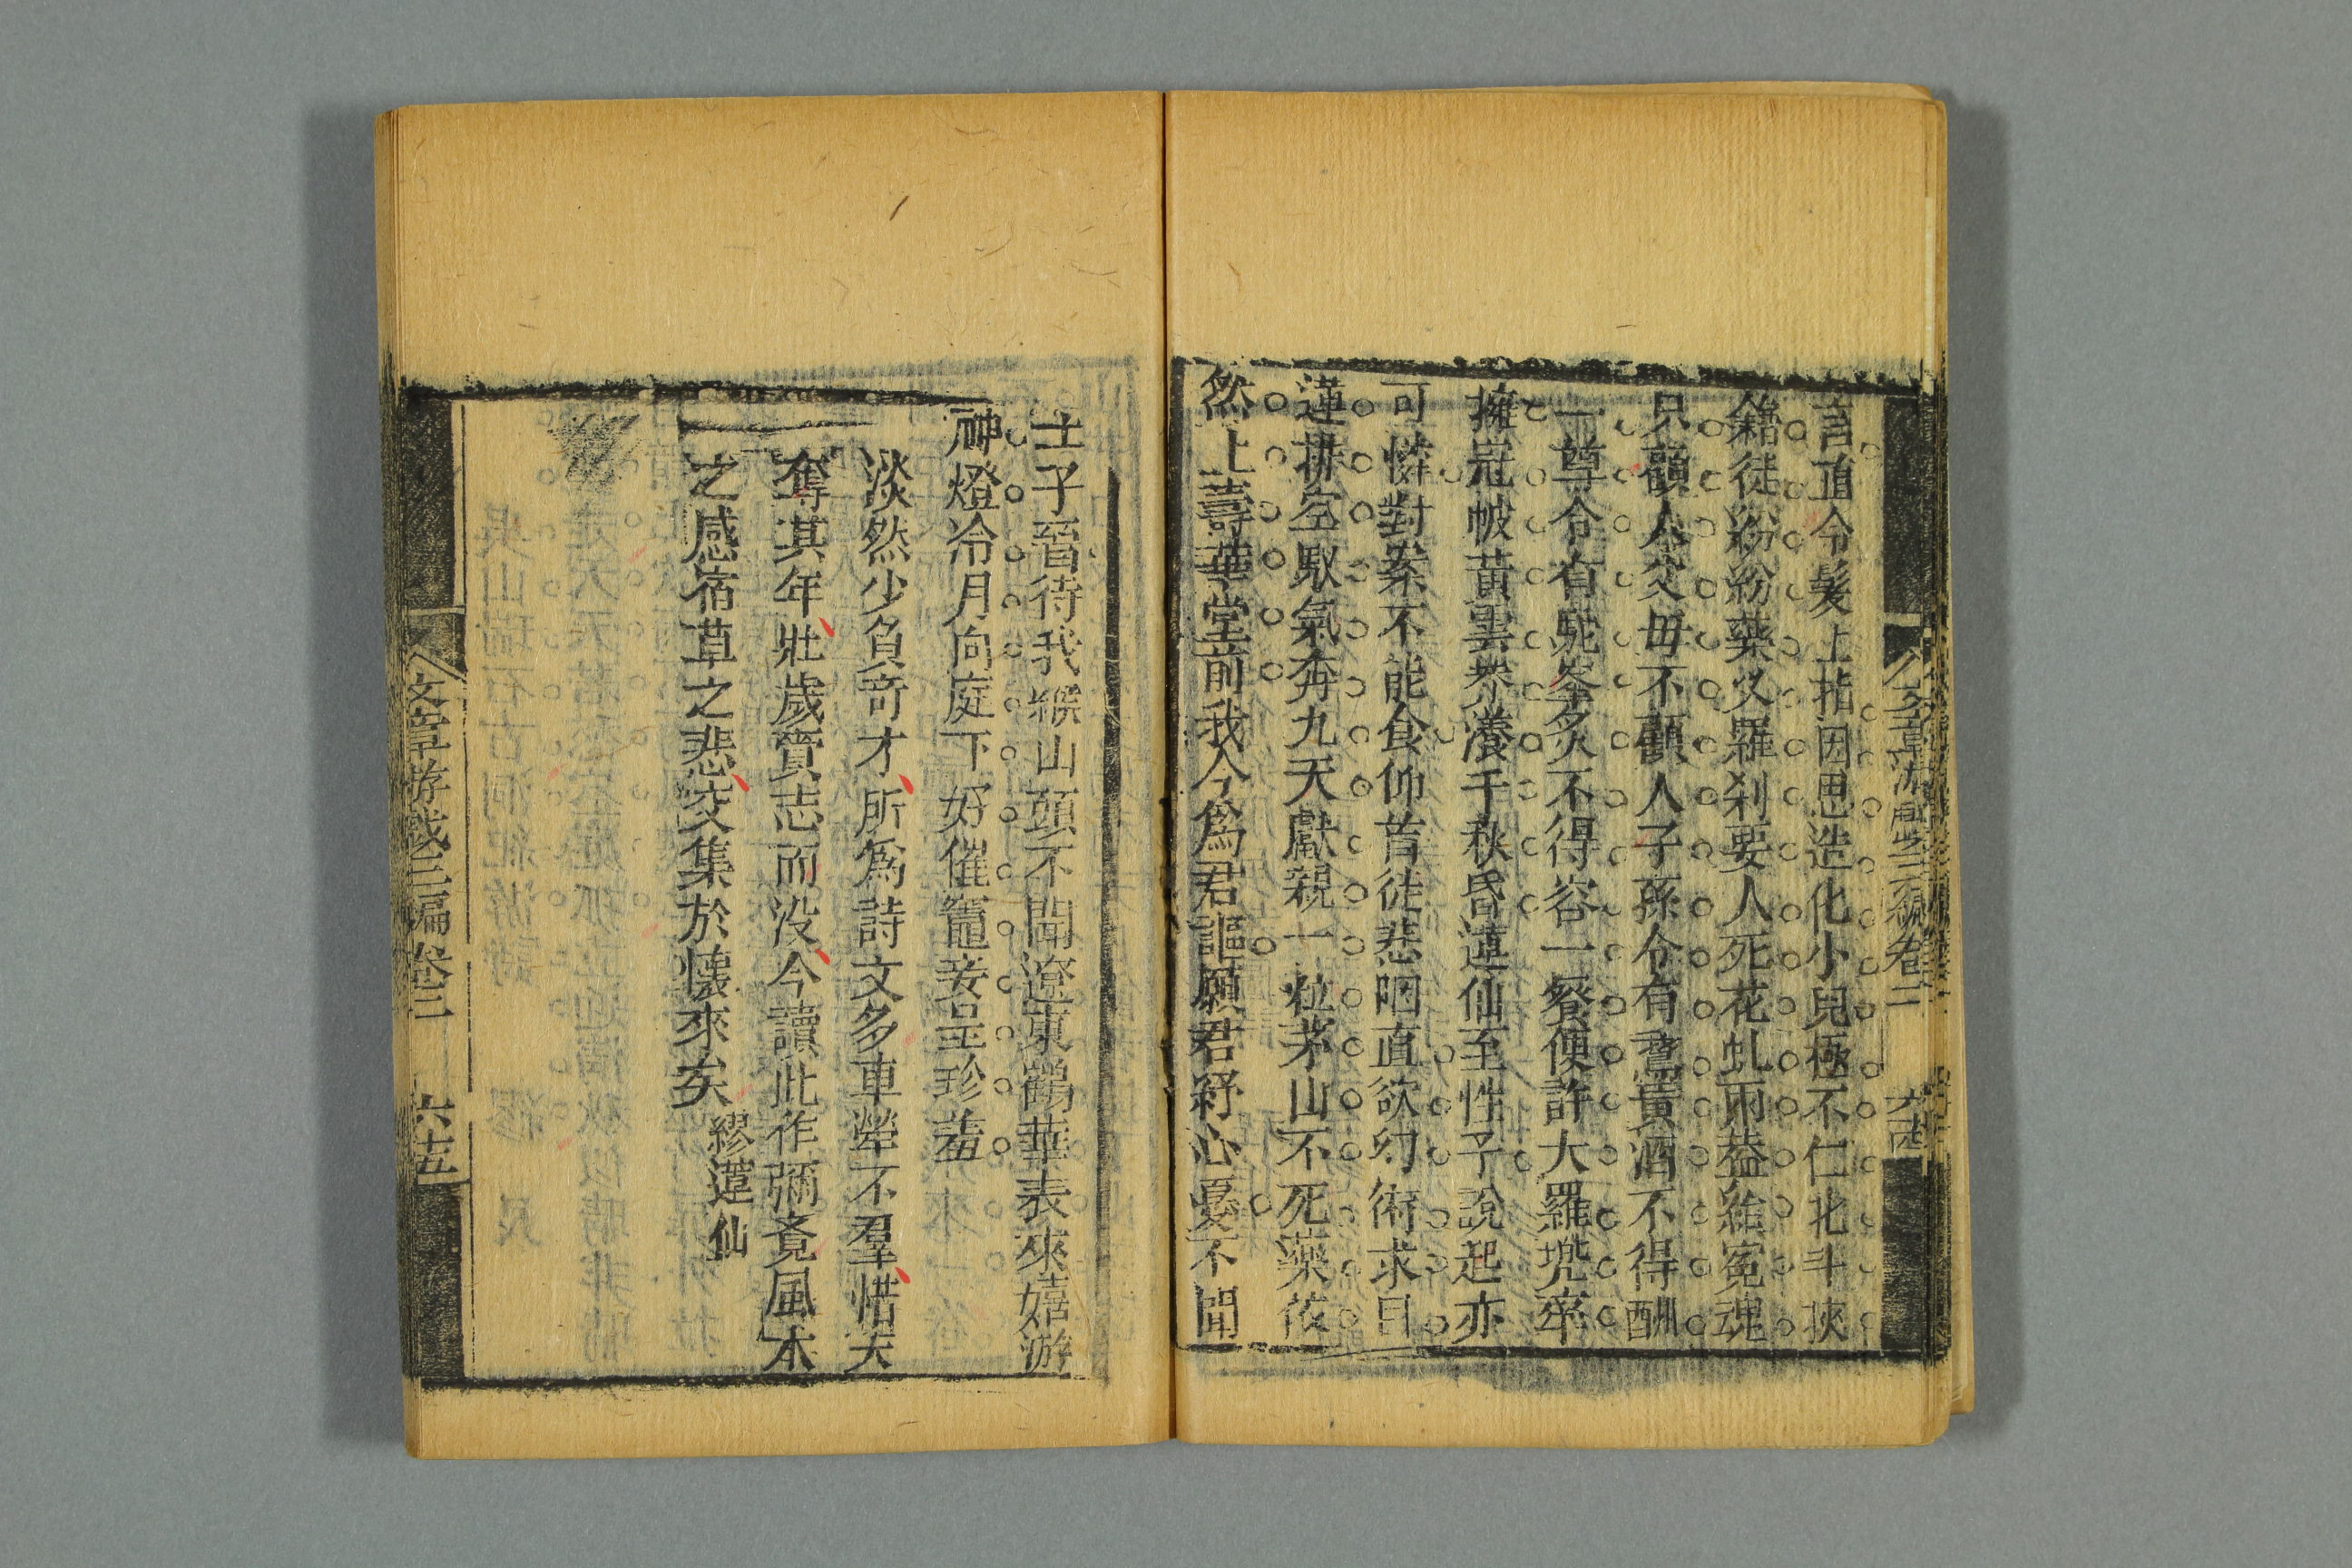 言直令髮上指因思造化小兒極不仁北斗挾
籍徒紛紛藥叉羅刹要人死花虬雨蓋結冤魂
只顧人父母不顧人子孫令有鵞黃酒不得酬
一尊令有駝峯炙不得容一餐便許大羅兜率
擁冠帔黃雲界瀁千秋昏蓮仙至性子說起亦
可憐對案不能食仰首徒悲咽直欲幻術求日
蓮排空馭氣奔九天獻親一粒茅山不死藥依
然上壽華堂前我今爲君謳願君紓心憂不聞
文章游戲三編卷二 六十四
士子晉待我緱山頭不聞遼東鶴華表來嬉游
神燈冷月向庭下好催竈妾呈珍羞
淡然少負奇才所爲詩文多車犖不羣惜天
奪其年壯歲賫志而没今讀此作彌覺風木
之感宿草之悲交集於懷來矣 繆蓮仙
文章游戲三編卷二 六十五